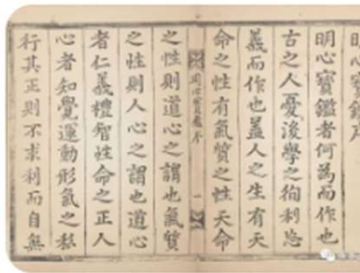 明心寶鑑序
明心寶鑑者何為而作也
古之人憂後學之徇利忘
義而作也蓋人之生有天
命之性有氣質之性天命
之性則道心之謂也氣質
之性則人心之謂也道心
者仁義禮智性命之正人
心者知覺運動形氣之私
行其正則不求利而自無